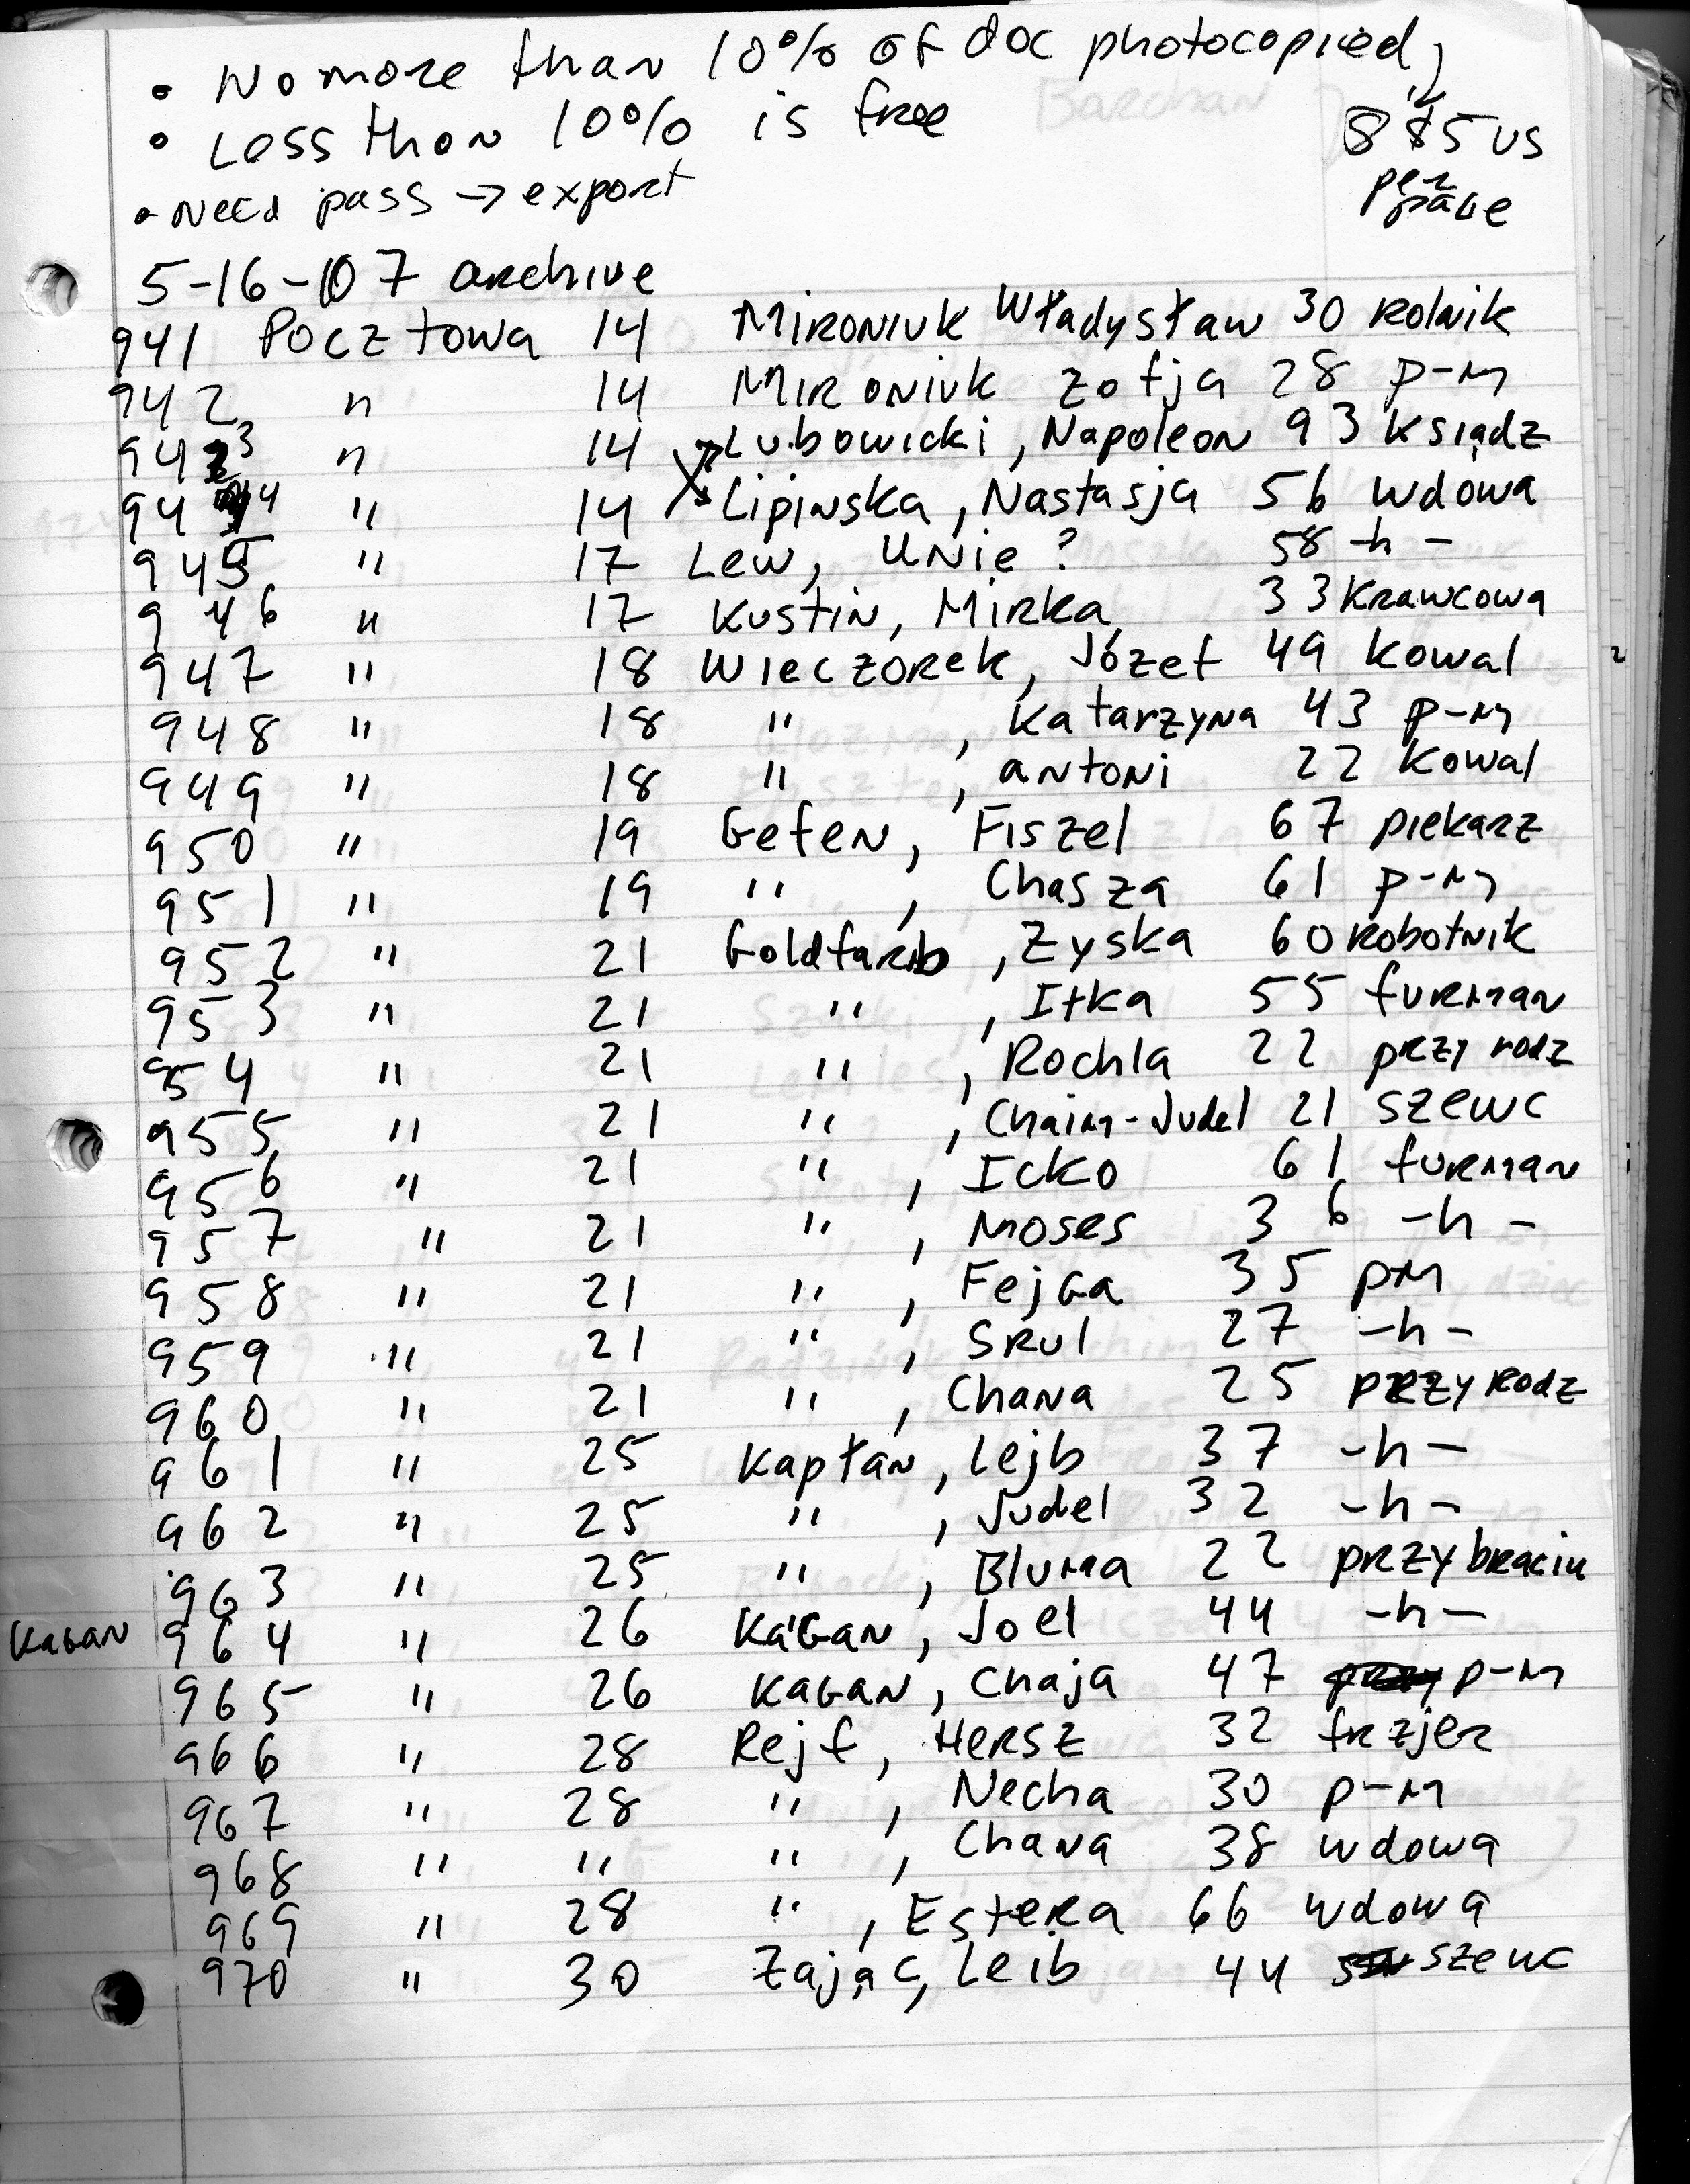 • No more than 10% of doc photocopied,
• Less than 10% is free
885 US
per
page
• Need pass → export
5-16-07 archive
941 Pocztowa 14 Mironiuk Władysław 30 Rolnik
942 " 14 Mironiuk Zofja 28 p-m
943 " 14 Lubowicki, Napoleon 93 Ksiądz
944 " 14 Lipinska, Nastasja 56 wdowa
945 " 17 Lew, Unie? 58 -h-
946 " 17 Kustin, Mirka 33 Krawcowa
947 " 18 Wieczorek, Józef 49 Kowal
948 " 18 " , Katarzyna 43 p-m
949 " 18 " , Antoni 22 Kowal
950 " 19 Gefen, Fiszel 67 piekarz
951 " 19 " , Chasza 61 p-m
952 " 21 Goldfarb, Zyska 60 Robotnik
953 " 21 " , Itka 55 furman
954 " 21 " , Rochla 22 przy rodz
955 " 21 " , Chaim-Judel 21 szewc
956 " 21 " , Icko 61 furman
957 " 21 " , Moses 36 -h-
958 " 21 " , Fejga 35 pm
959 " 21 " , Srul 27 -h-
960 " 21 " , Chana 25 przy rodz
961 " 25 Kapłan, Lejb 37 -h-
962 " 25 " , Judel 32 -h-
963 " 25 " , Bluma 22 przy braciu
Kagan 964 " 26 Kagan, Joel 44 -h-
965 " 26 Kagan, Chaja 47 p-m
966 " 28 Rejf, Hersz 32 frzjer
967 " 28 " , Necha 30 p-m
968 " " " , Chana 38 wdowa
969 " 28 " , Estera 66 wdowa
970 " 30 Zając, Leib 44 szewc